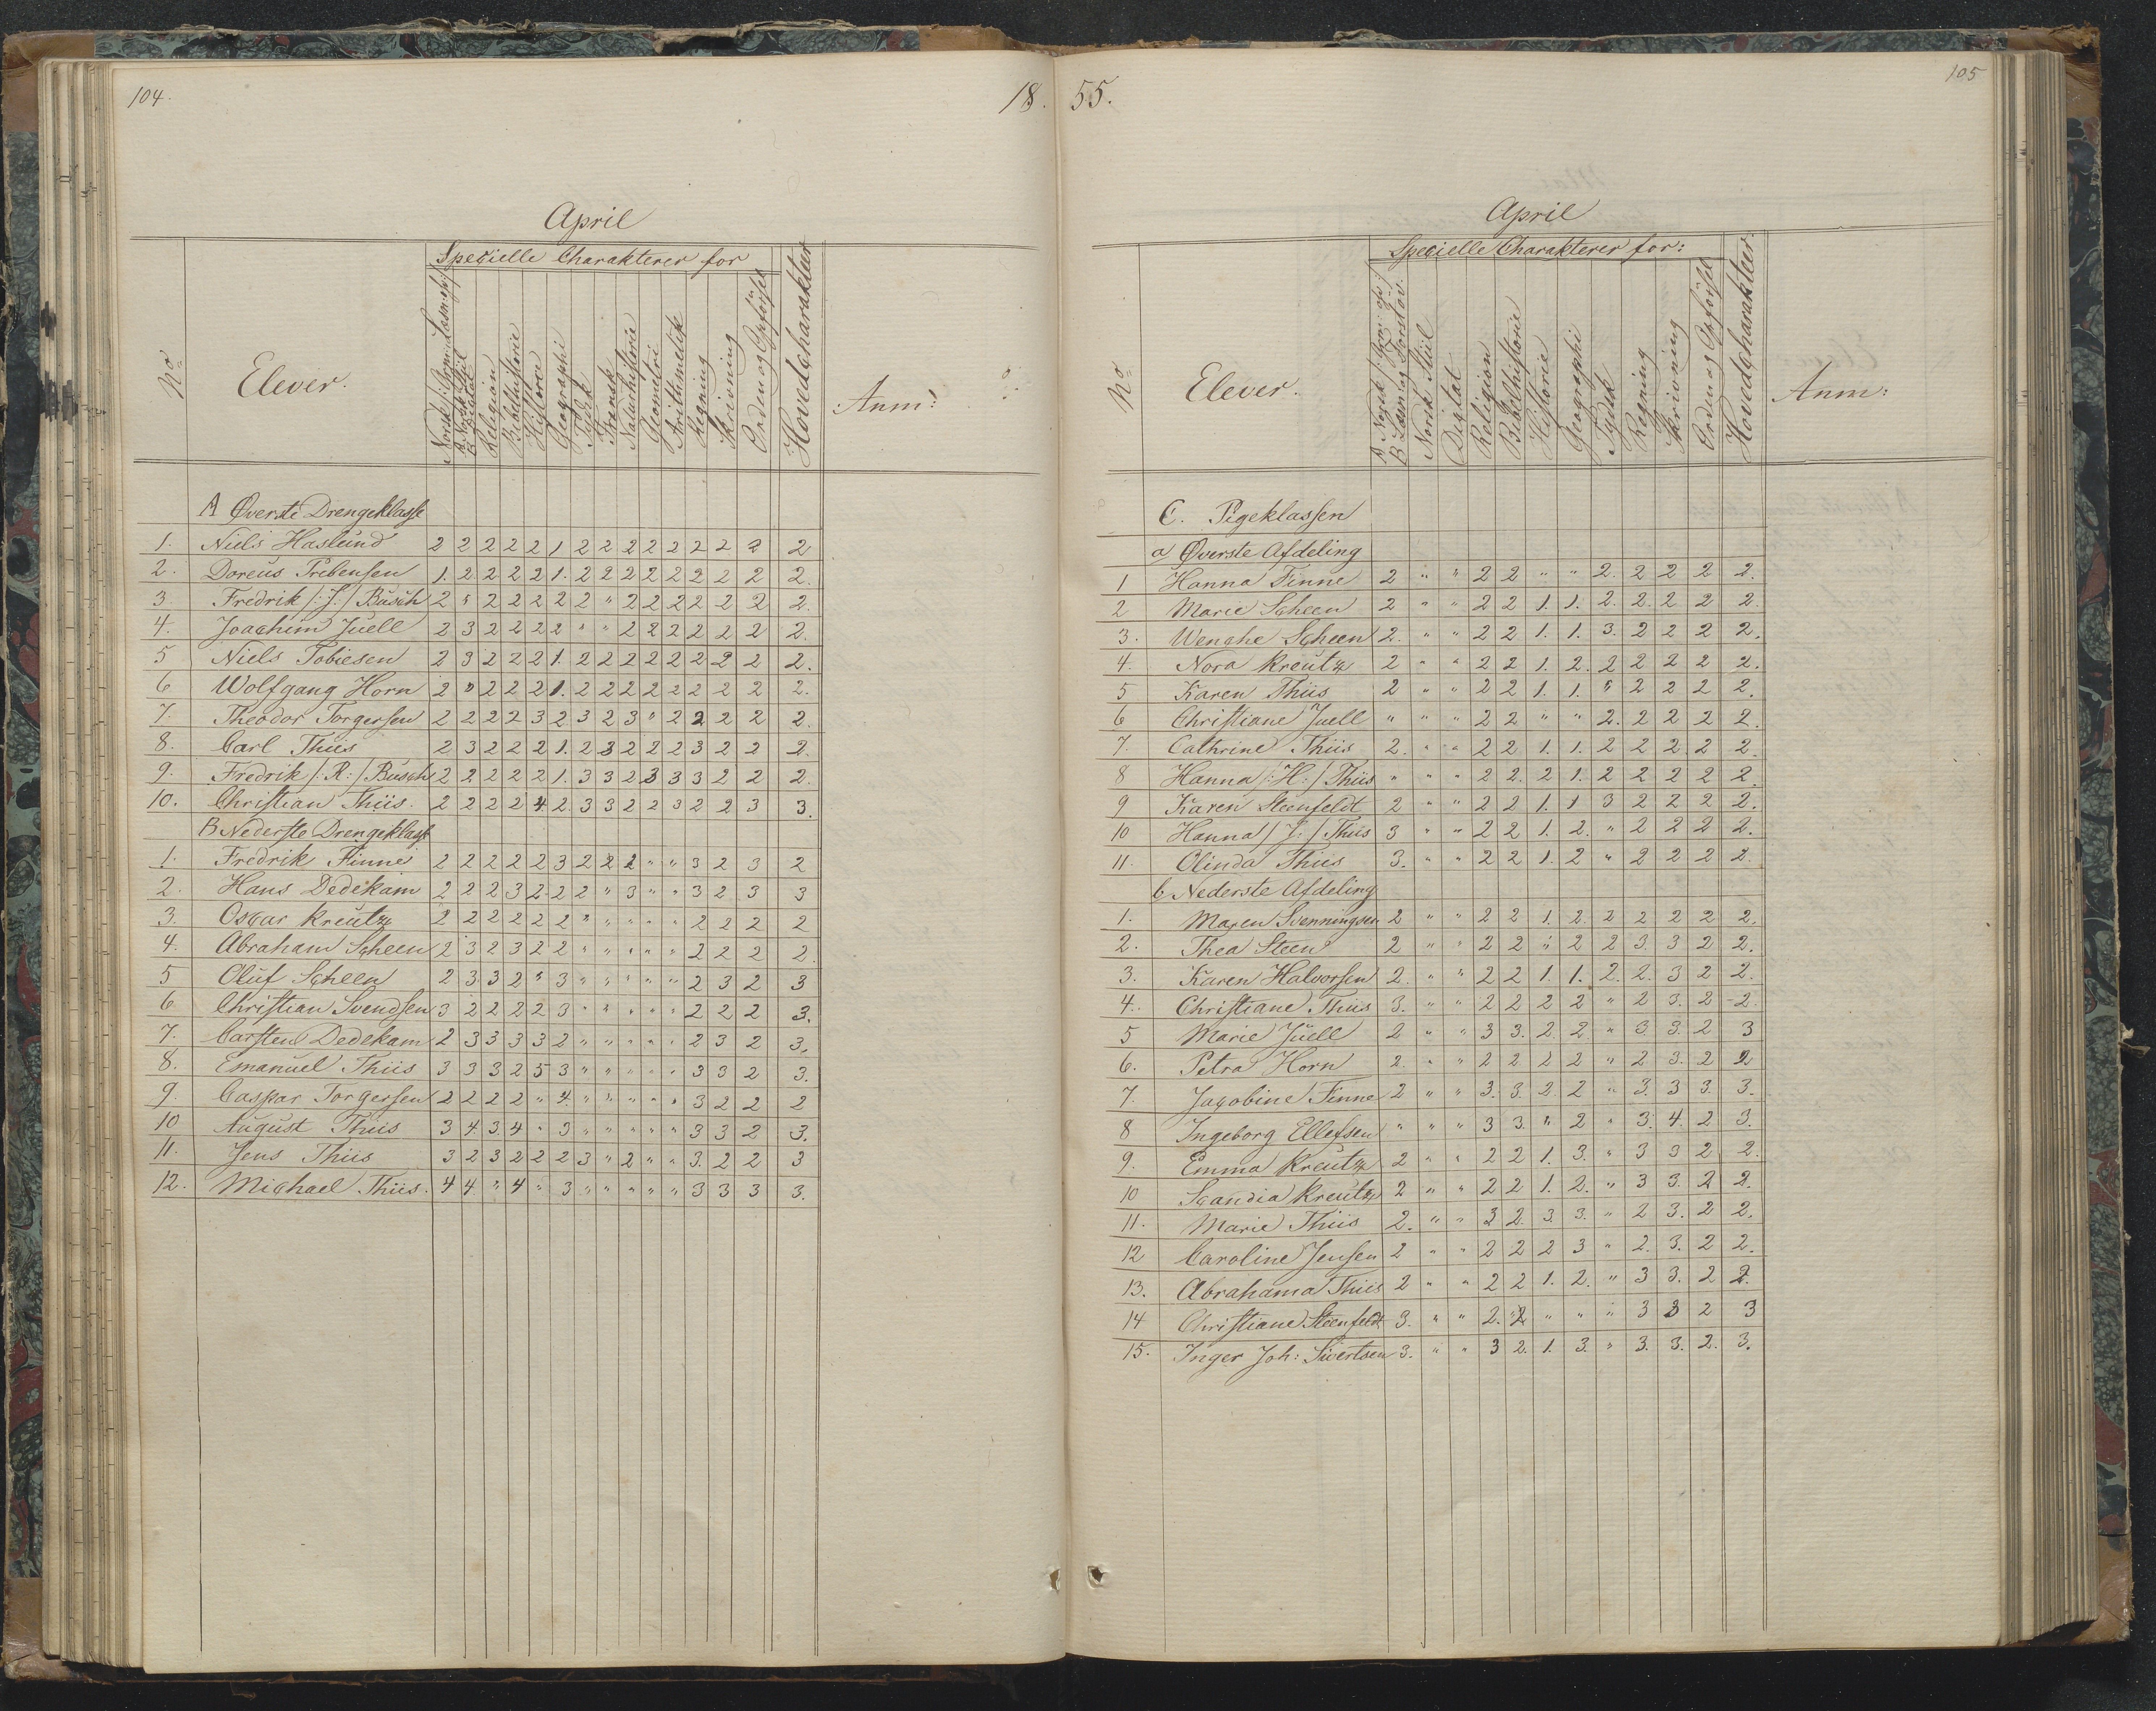 104.
18.
April
Specielle Charakterer for
No
Elever.
Religion
Bibelhistorie
Historie
Geographi
Tydsk
Fransk
Naturhistorie
Geometri
Arithmetik
Regning
Skrivning
Orden og Opførsel
Hovedcharakteer
Anm:
A Øverste Drengeklasse
1. Niels Haslund 2 2 2 2 2 1 2 2 2 2 2 2 2 2 2
2. Doreus Prebensen 1. 2 2 2 2 1. 2 2 2 2 2 2 2 2 2.
3. Fredrik /:J:/ Busch 2 " 2 2 2 2 2 " 2 2 2 2 2 2 2.
4. Joachim Juell 2 3 2 2 2 2 " " 2 2 2 2 2 2 2.
5 Niels Tobiesen 2 3 2 2 2 1. 2 2 2 2 2 2 2 2 2.
6 Wolfgang Horn 2 " 2 2 2 1. 2 2 2 2 2 2 2 2 2.
7. Theodor Torgersen 2 2 2 2 3 2 3 2 3 " 2 2 2 2 2.
8. Carl Thiis 2 3 2 2 2 1. 2 3 2 2 2 3 2 2 2.
9. Fredrik /:R:/ Busch 2 2 2 2 2 1. 3 3 2 3 3 3 2 2 2.
10. Christian Thiis. 2 2 2 2 4 2 3 3 2 2 3 2 2 3 3.
B Nederste Drengeklasse
1. Fredrik Finne 2 2 2 2 2 3 2 2 2 " " 3 2 3 2
2. Hans Dedekam 2 2 2 3 2 2 2 " 3 " " 3 2 3 3
3. Oscar Kreutz 2 2 2 2 2 2 2 " " " " 2 2 2 2
4. Abraham Scheen 2 3 2 3 2 2 " " " " " 2 2 2 2.
5 Oluf Scheen 2 3 3 2 " 3 " " " " " 2 3 2 3
6. Christian Svendsen 3 2 2 2 2 3 " " " " " 2 2 2 3.
7. Carsten Dedekam 2 3 3 3 3 2 " " " " " 2 3 2 3.
8. Emanuel Thiis 3 3 3 2 5 3 " " " " " 3 3 2 3.
9. Caspar Torgersen 2 2 2 2 " 4. " " " " " 3 2 2 2
10 August Thiis 3 4. 3. 4 " 3 " " " " " 3 3 2 3.
11. Jens Thiis 3 2 3 2 2 2 3 " 2 " " 3. 2 2 3
12. Michael Thiis. 4 4 " 4 " 3 " " " " " 3 3 3 3.
55.
105
April
Specielle Charakterer for:
No
Elever.
A Norsk /:Gram: og
B Læsn: og Forstav.
Norsk Stiil
Dictat
Religion
Bibelhistorie
Historie
Geographi
Tydsk
Regning
Skrivning
Orden og Opførsel
Hovedcharakteer
Anm:
C. Pigeklassen
a Øverste Afdeling
1 Hanna Finne 2 " " 2 2 " " 2. 2 2 2 2.
2 Marie Scheen 2 " " 2 2 1. 1. 2. 2. 2 2 2.
3. Wenche Scheen 2. " " 2 2 1. 1. 3. 2 2 2 2.
4. Nora Kreutz 2 " " 2 2 1. 2. 2 2 2 2 2.
5 Karen Thiis 2 " " 2 2 1. 1. " 2 2 2 2.
6 Christiane Juell " " " 2 2 " " 2. 2 2 2 2.
7. Cathrine Thiis 2. " " 2 2 1. 1. 2 2 2 2 2.
8 Hanna /:H:/ Thiis " " " 2 2. 2 1. 2 2 2 2 2.
9 Karen Steenfeldt 2 " " 2 2 1. 1 3 2 2 2 2.
10 Hanna /:J:/ Thiis 3 " " 2 2 1. 2. " 2 2 2 2.
11. Olinda Thiis 3. " " 2 2 1. 2 " 2 2 2 2.
b Nederste Afdeling
1. Maren Svenningsen 2 " " 2 2 1 2. 2 2 2 2 2.
2. Thea Steen 2 " " 2 2 " 2 2 3. 3 2 2.
3. Karen Halvorsen 2. " " 2 2 1. 1. 2. 2. 3 2 2.
4. Christiane Thiis 3. " " 2 2 2 2 " 2 3. 2 2.
5 Marie Juell 2 " " 3 3. 2. 2. " 3. 3. 2 3
6. Petra Horn 2. " " 2 2 2 2 " 2 3. 2 2
7. Jacobine Finne 2 " " 3. 3. 2. 2 " 3. 3 3. 3.
8 Ingeborg Ellefsen " " " 3 3. " 2 " 3. 4. 2 3.
9. Emma Kreutz 2 " " 2 2 1. 3. " 3 3 2 2.
10 Scandia Kreutz 2 " " 2 2 1. 2. " 3 3. 2 2.
11. Marie Thiis 2. " " 3 2. 3. 3. " 2 3. 2 2.
12 Caroline Jensen 2 " " 2 2 2 3 " 2. 3. 2 2.
13. Abrahama Thiis 2 " " 2 2 1. 2. " 3 3. 2 2.
14 Christiane Steenfeldt 3. " " 2. 2 " " " 3 3 2 3
15. Inger Joh: Sivertsen 3. " " 3 2. 1. 3. " 3. 3. 2. 3.